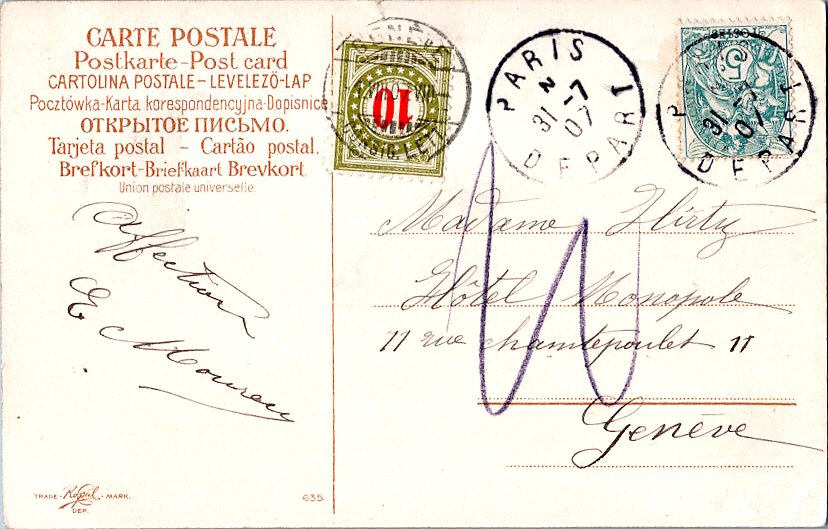 CARTE POSTALE
Postkarte-Post card
CARTOLINA POSTALE-LEVELEZŐ-LAP
Pocztówka-Karta korespondencyjna-Dopisnice
ОТКРЫТОЕ ПИСЬМО.
Tarjeta postal - Cartão postal.
Brefkort-Briefkaart Brevkort
Union postale universelle.
10
PARIS
2
31 -7
07
DEPART
5
31 -7
07
DEPART
Madame Hirtz
Hôtel Monopole
11 rue chantepoulet 11
Genève
Affection
E.
TRADE- Kopal -MARK.
DEP.
635